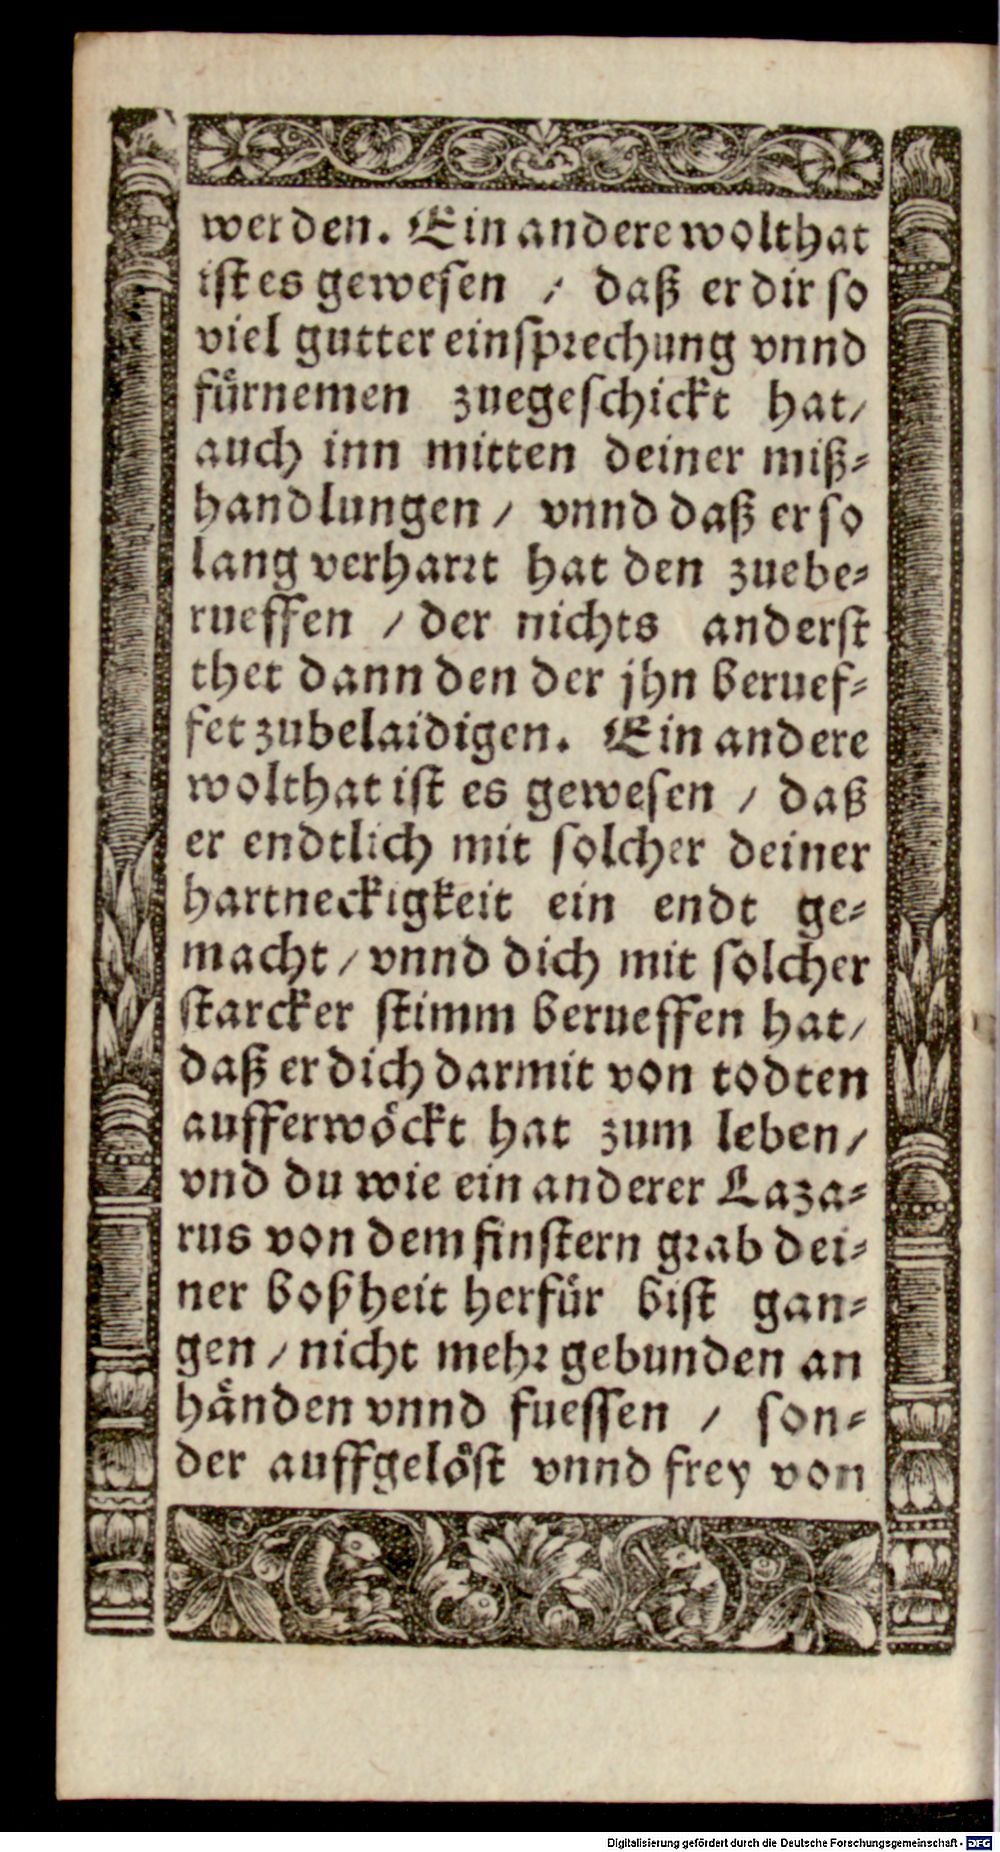 werden. Ein andere wolthat
ist es gewesen / daß er dir so
viel gutter einsprechung vnnd
fürnemen zuegeschickt hat/
auch inn mitten deiner miß-
handlungen / vnnd daß er so
lang verharrt hat den zuebe-
rueffen / der nichts anderst
thet dann den der jhn beruef-
fet zubelaidigen. Ein andere
wolthat ist es gewesen / daß
er endtlich mit solcher deiner
hartneckigkeit ein endt ge-
macht / vnnd dich mit solcher
starcker stimm berueffen hat/
daß er dich darmit von todten
aufferwöckt hat zum leben/
vnd du wie ein anderer Laza-
rus von dem finstern grab dei-
ner boßheit herfür bist gan-
gen / nicht mehr gebunden an
händen vnnd fuessen / son-
der auffgelöst vnnd frey von
Digitalisierung gefördert durch die Deutsche Forschungsgemeinschaft - DFG